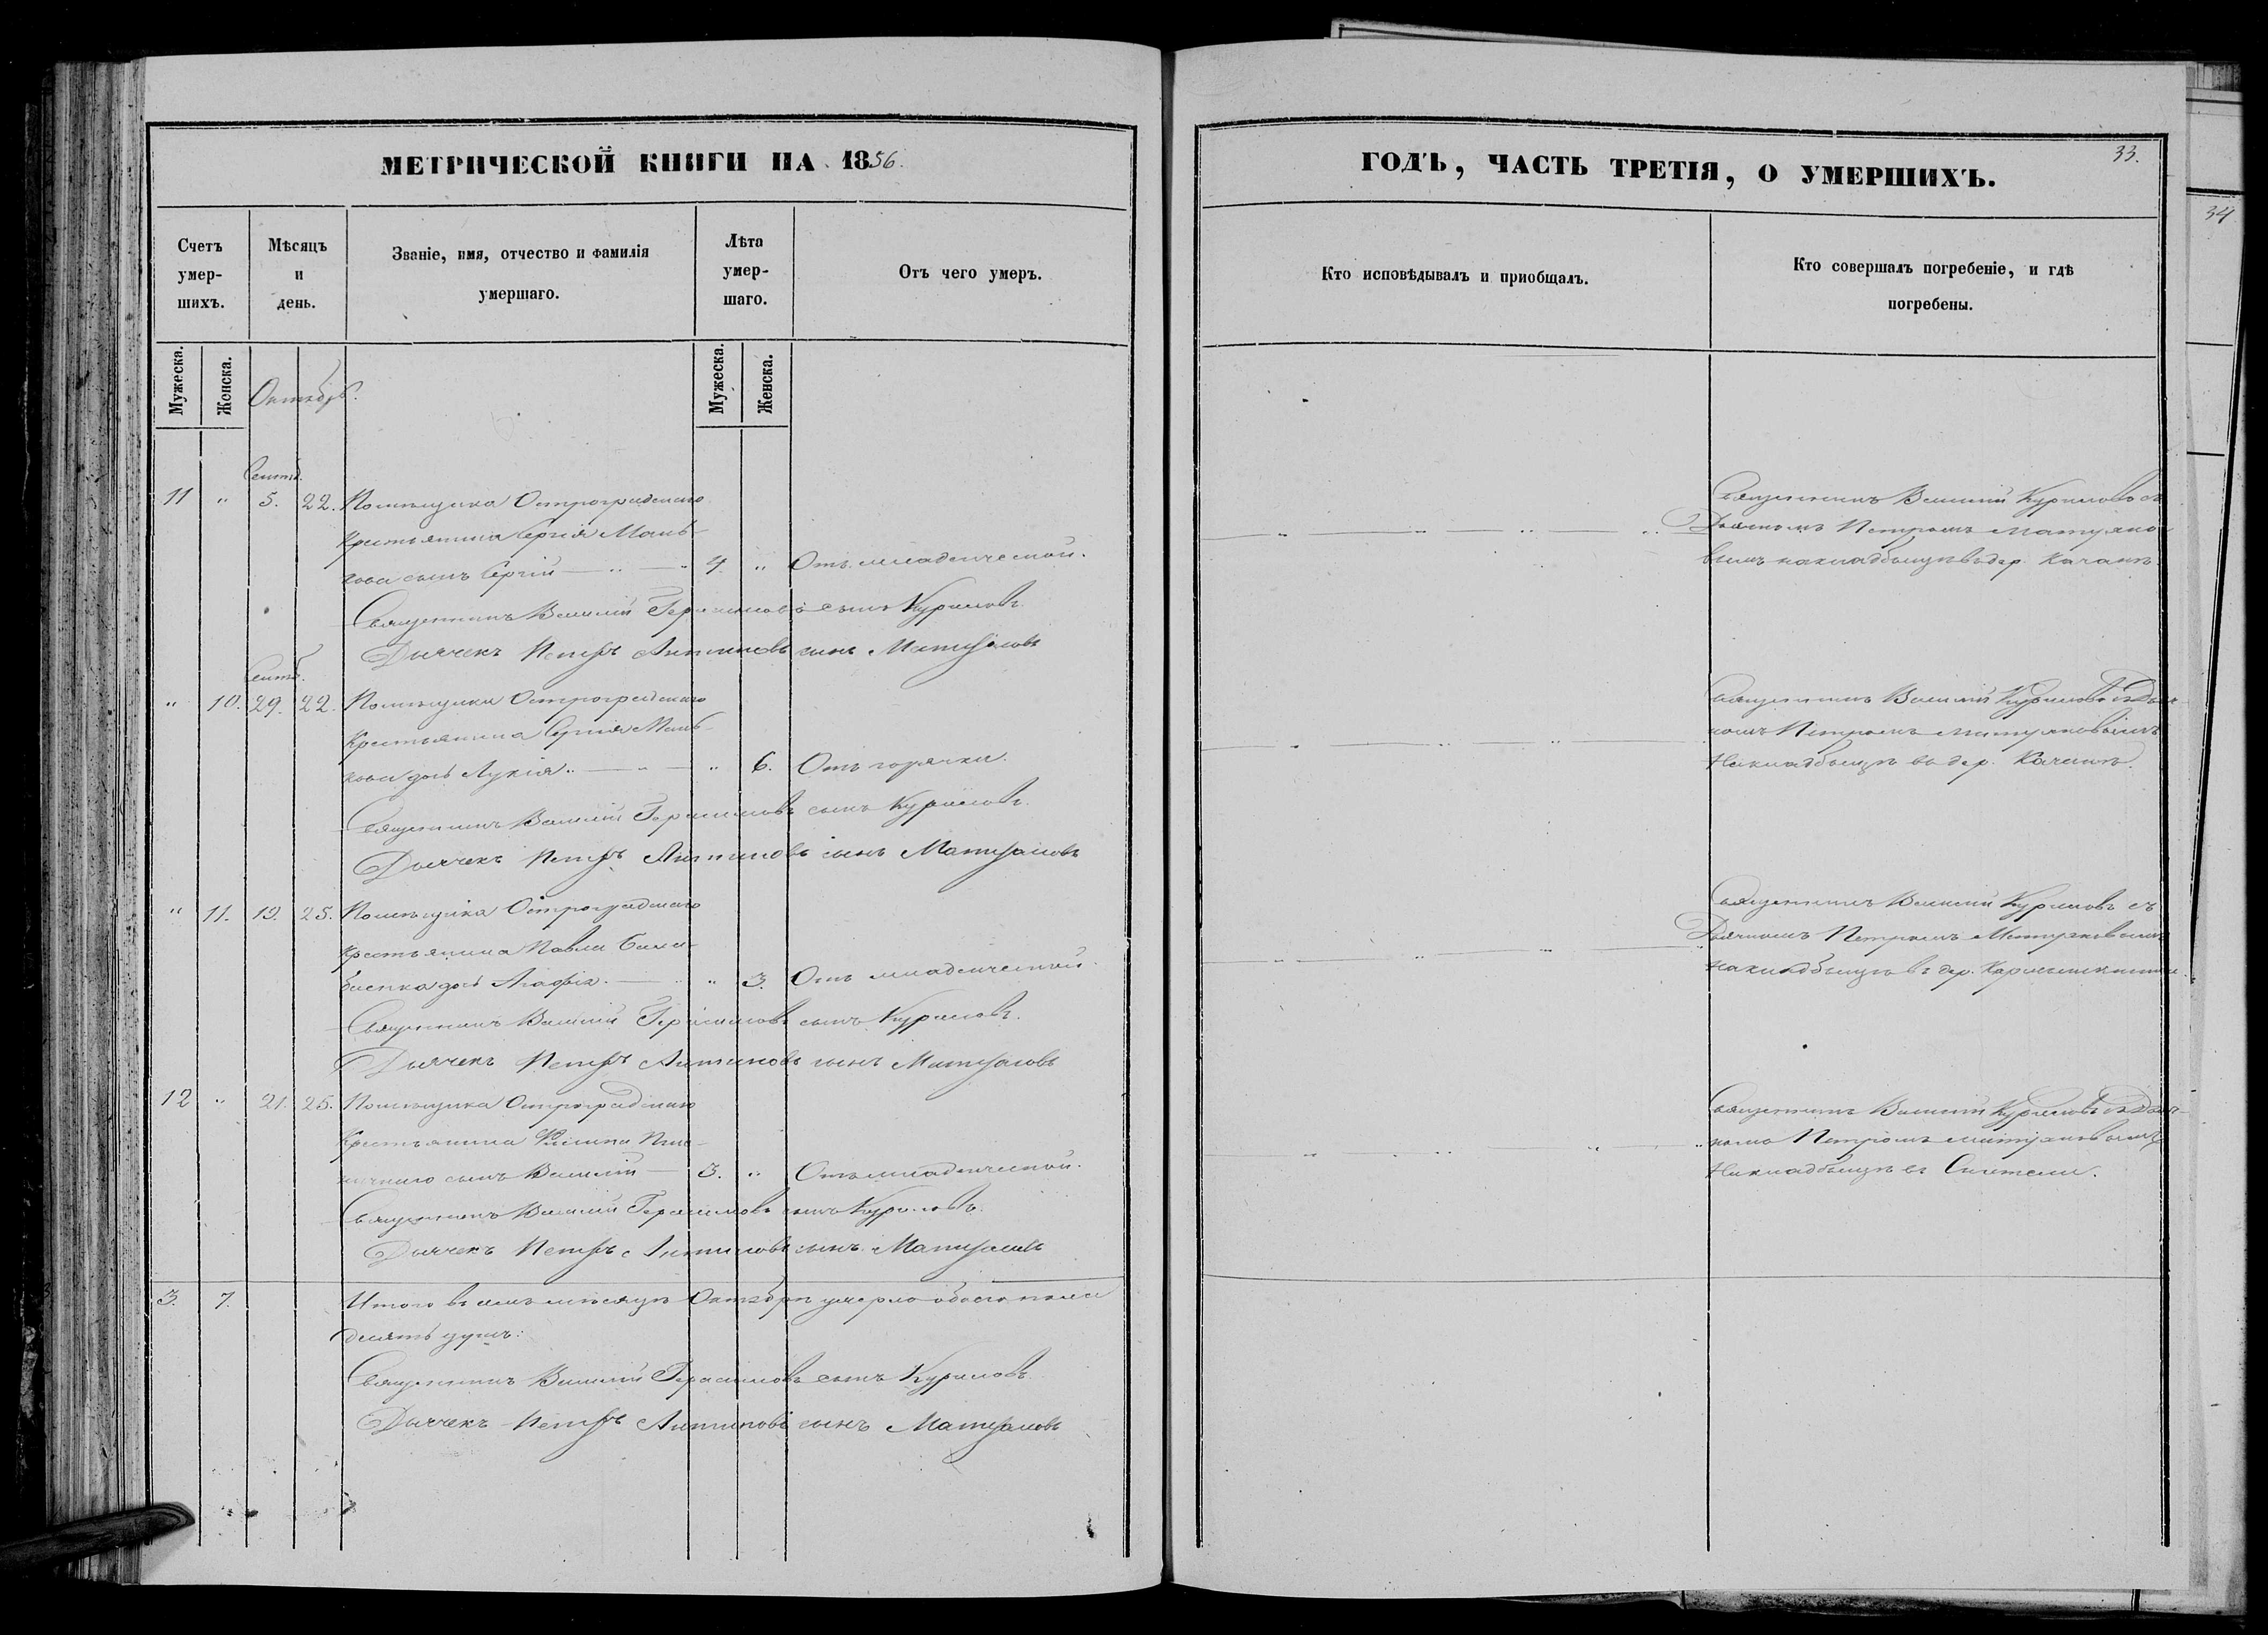 МЕТРИЧЕСКОЙ КНИГИ НА 1856.
Счетъ умер-шихъ.
Мѣсяцъ и день.
Званіе, имя, отчество и фамилія умершаго.
Лѣта умер-шаго.
Отъ чего умеръ.
Мужеска.
Женска.
Октябрь.
Мужеска.
Женска.
Сентб.
11 " 5. 22. Помѣщика Остроградскаго
крестьянина Сергія
сынъ Сергій — " — 4. " Отъ младенческой.
Священникъ Василій Герасимовъ сынъ Куриловъ
Дьячекъ Петръ Антиповъ сынъ
Сентб.
" 10. 29. 22. Помѣщика Остроградскаго
Крестьянина Сергія
дочь Лукія. — " — " 6. Отъ горячки.
Священникъ Василій Герасимовъ сынъ Куриловъ
Дьячекъ Петръ Антиповъ сынъ
" 11. 19. 25. Помѣщика Остроградскаго
крестьянина Павла
дочь Агафія. — " 3. Отъ младенческой.
Священникъ Василій Герасимовъ сынъ Куриловъ.
Дьячекъ Петръ Антиповъ сынъ
12 " 21. 25. Помѣщика Остроградскаго
Крестьянина Филипа
сынъ Василій — 3. " Отъ младенческой.
Священникъ Василій Герасимовъ сынъ Куриловъ
Дьячекъ Петръ Антиповъ сынъ
3. 7. Итого въ семъ мѣсяцѣ Октябрѣ умерло обоего пола
десять душъ:
Священникъ Василій Герасимовъ сынъ Куриловъ
Дьячекъ Петръ Антиповъ сынъ
ГОДЪ, ЧАСТЬ ТРЕТІЯ, О УМЕРШИХЪ.
33.
34
Кто исповѣдывалъ и приобщалъ.
Кто совершалъ погребеніе, и гдѣ
погребены.
Священникъ Василій Куриловъ съ
Дьячкомъ Петромъ
на кладбищѣ въ дер.
Священникъ Василій Куриловъ съ Дьяч-
комъ Петромъ
На кладбищѣ въ дер.
Священникъ Василій Куриловъ съ
Дьячкомъ Петромъ
на кладбищѣ въ дер.
Священникъ Василій Куриловъ съ Дьяч-
комъ Петромъ
На кладбищѣ въ